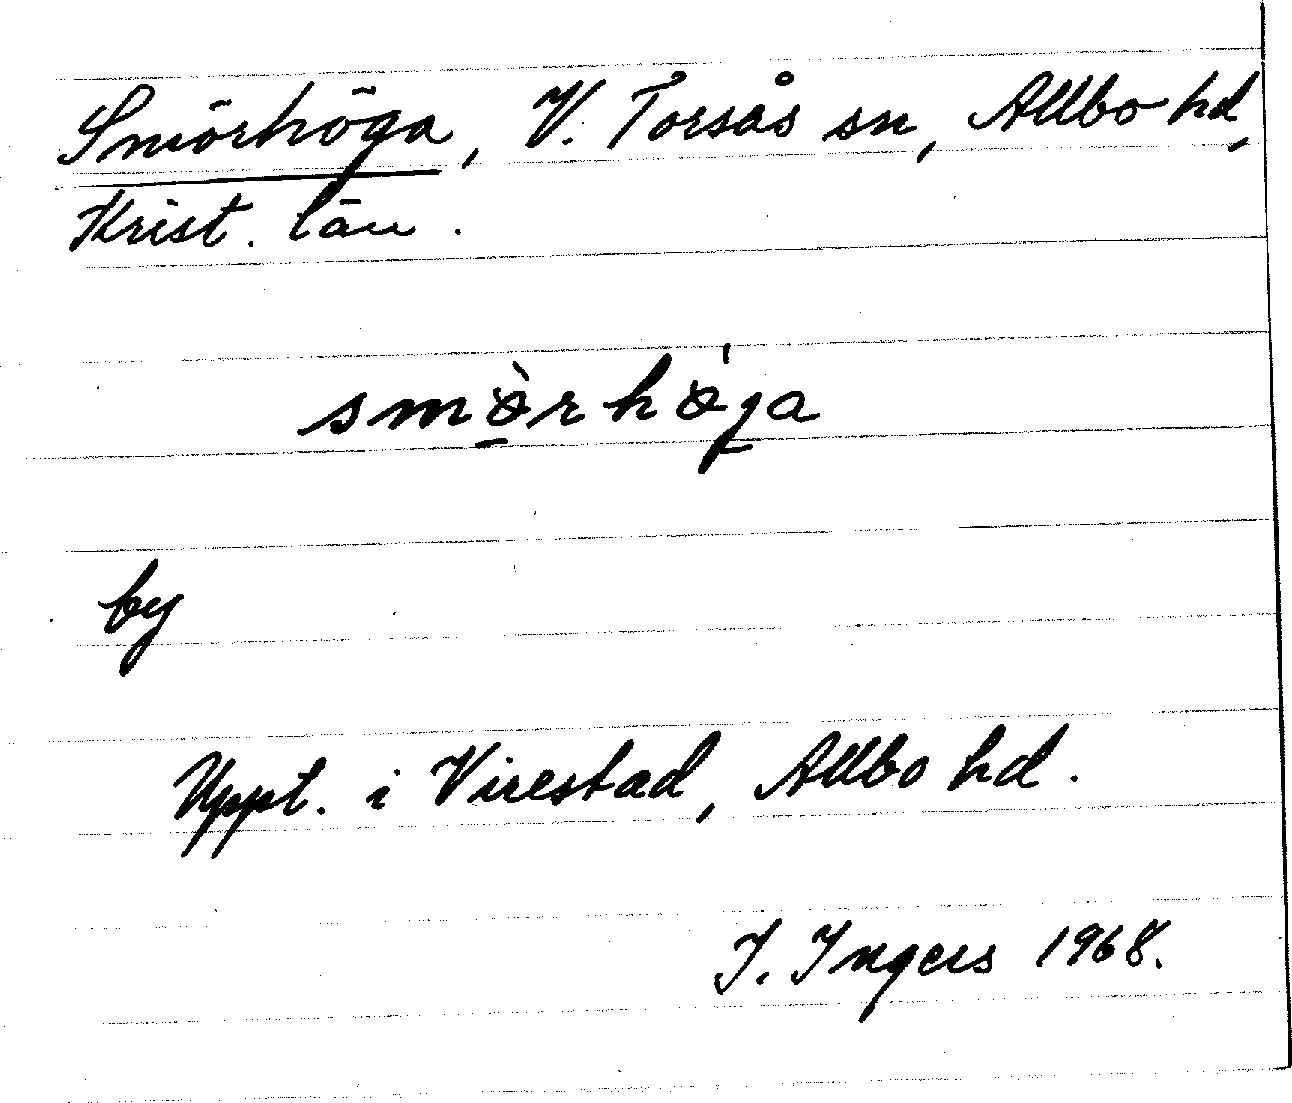 Smörhöga, V. Torsås sn, Allbo hd,
Krist. län.
smø̠̀rhǿga
by
Uppt. i Virestad, Allbo hd.
I. Ingers 1968.